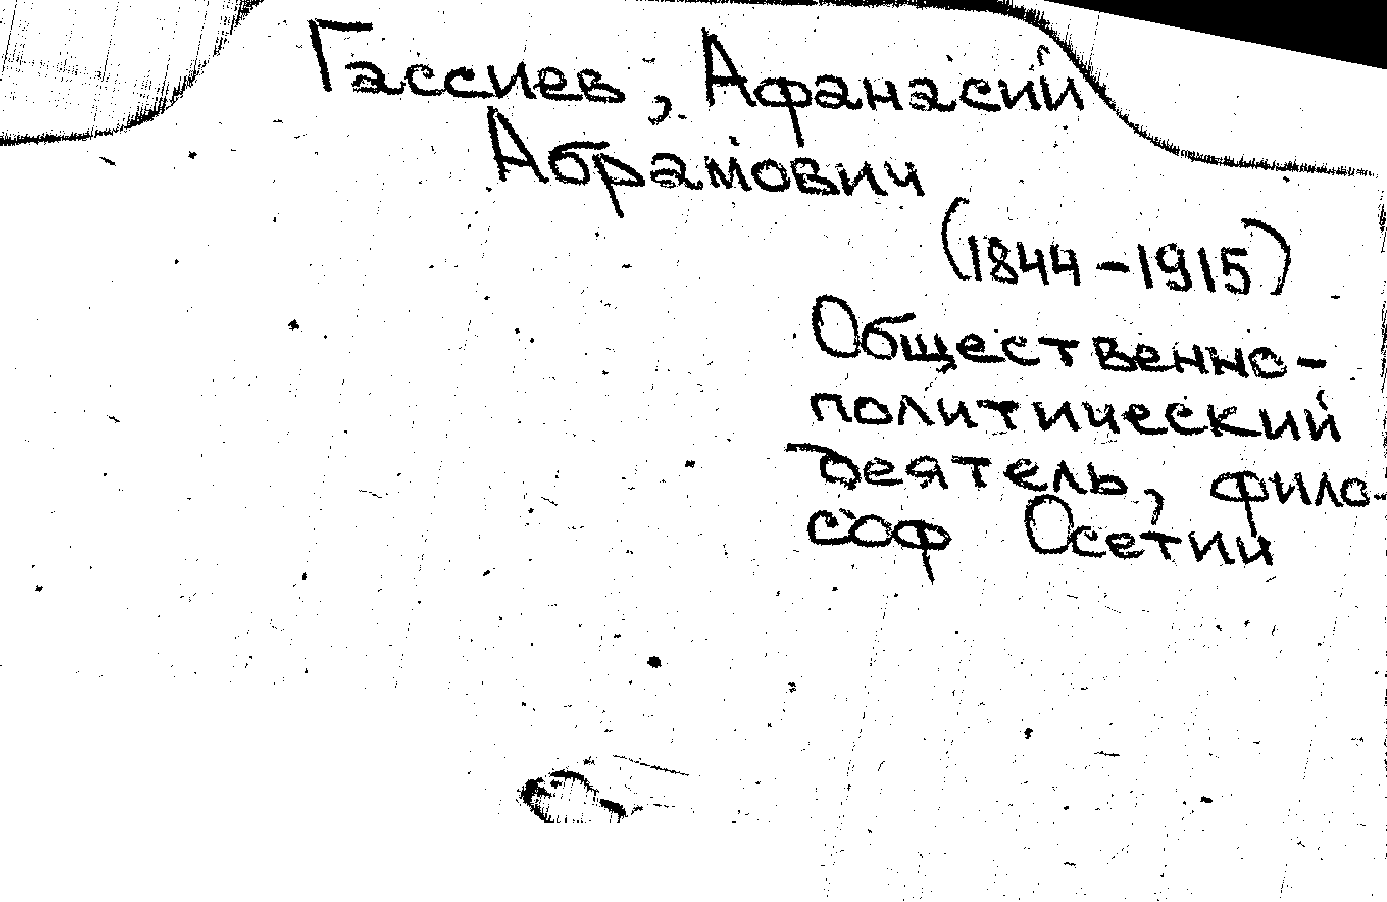 Гассиев, Афанасий
Абрамович
(1844-1915)
Общественно-
политический
деятель, фило-
соф Осетии